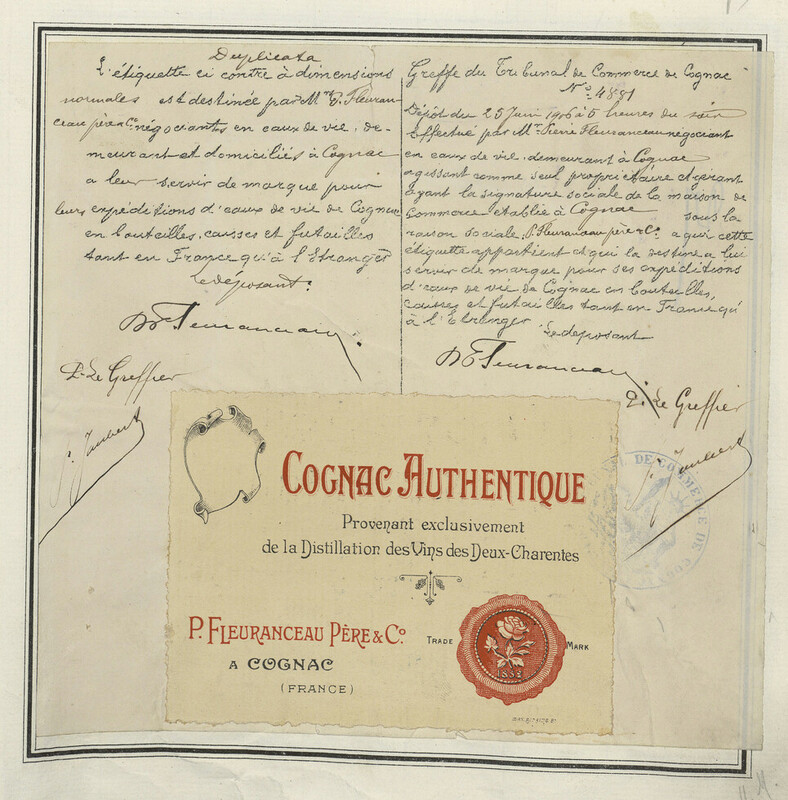 Duplicata
L'étiquette ci contre à dimensions
normales est destinée par Mrs P. Fleuran-
ceau père & Co négociants en eaux de vie, de-
meurant et domiciliés à Cognac
a leur servir de marque pour
leurs expéditions d'eaux de vie de Cognac
en bouteilles, caisses et futailles
tant en France qu'à l'Etranger
Le déposant:
P. Fleuranceau
Pr Le Greffier
Greffe du Tribunal de Commerce de Cognac
No 4881
Dépôt du 25 Juin 1906 à 5 heures du soir
Effectué par Mr Pierre Fleuranceau négociant
en eaux de vie, demeurant à Cognac
agissant comme seul propriétaire et gérant
ayant la signature sociale de la maison de
Commerce établie à Cognac sous la
raison sociale, P. Fleuranceau père & Co a qui cette
étiquette appartient et qui la destine a lui
servir de marque pour ses expéditions
d'eaux de vie de Cognac en bouteilles,
caisses et futailles tant en France qu'
à l'Etranger
Le déposant
P. Fleuranceau
Pr Le Greffier
DE COMMERCE DE
COGNAC AUTHENTIQUE
Provenant exclusivement
de la Distillation des Vins des Deux-Charentes
P. FLEURANCEAU PÈRE & Co.
A COGNAC
(FRANCE)
TRADE MARK